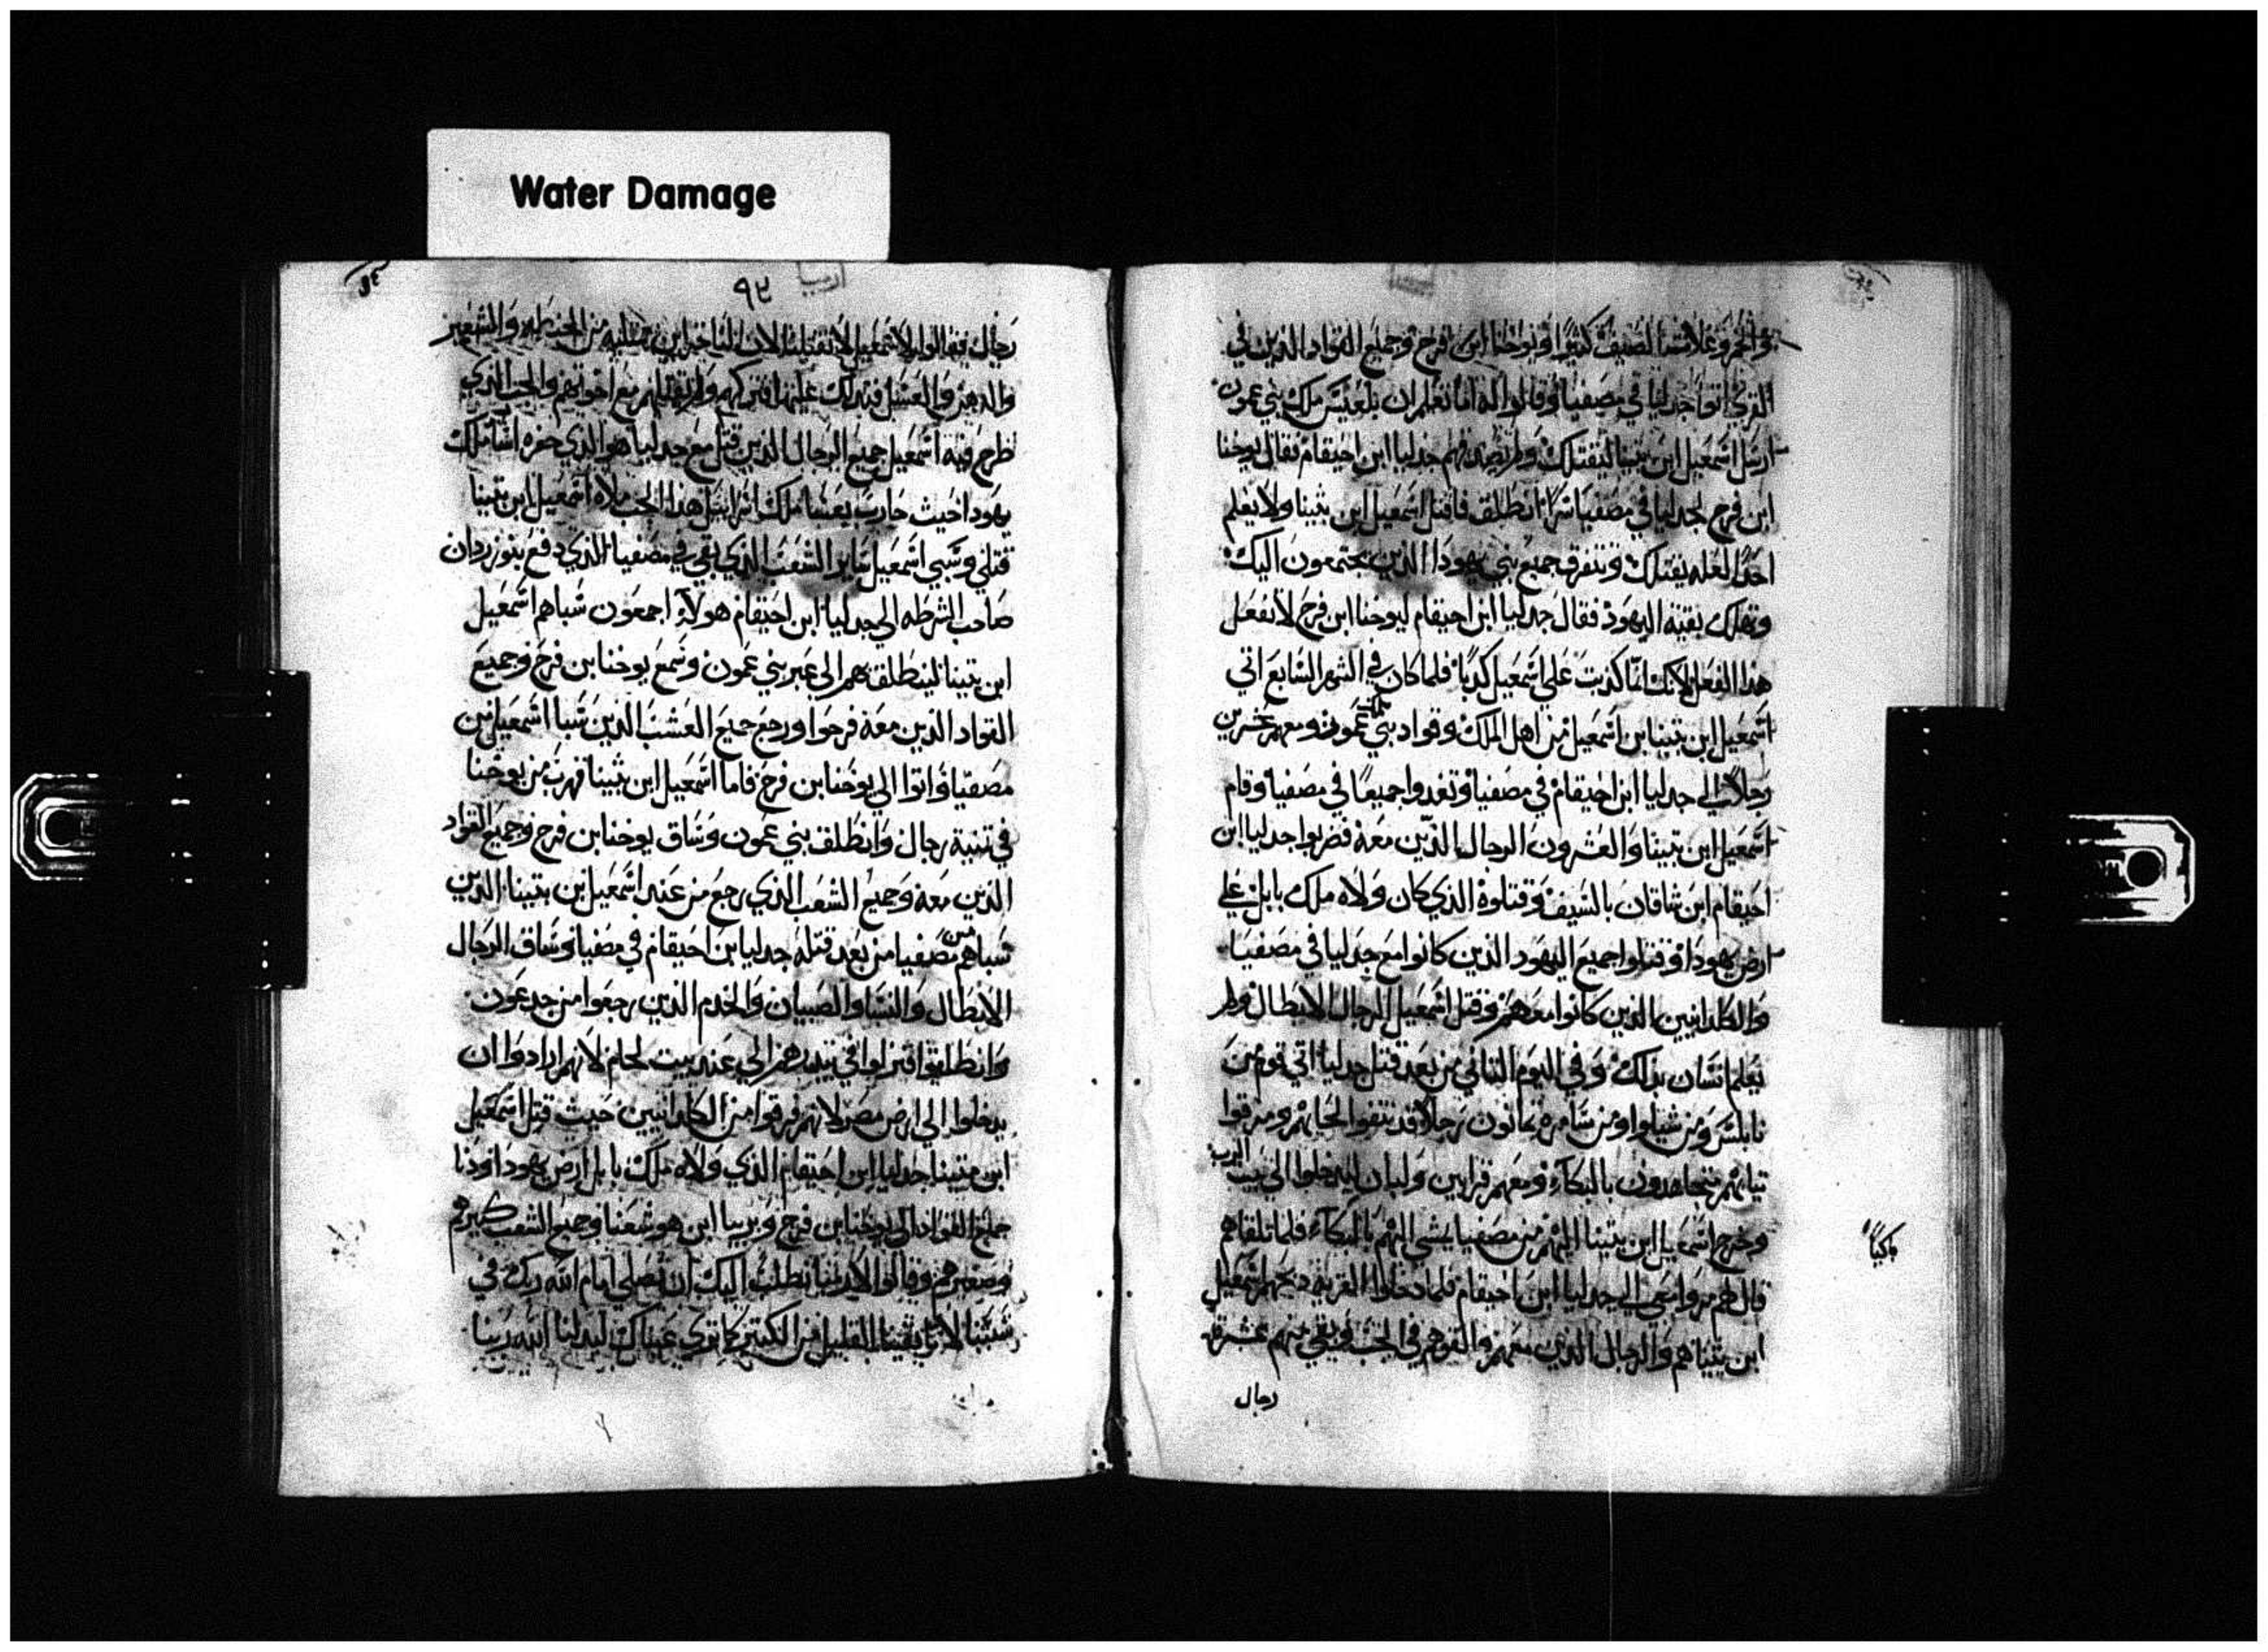 Water Damage
وقوام الذين في
القرى اتوا جدليا في مصفيا وقالوا له اما تعلم ان بلعيس ملك بني عمون
ارسل اسمعيل ابن نتينا ليقتلك ولم يصدقهم جدليا ابن احيقام فقال يوحنا
ابن فرح لجدليا في مصفيا سرا انطلق فاقتل اسمعيل ابن نثينا ولا يعلم
احدا لعله يقتلك وتتفرق جميع بني يهودا الذين يجتمعون اليك
وتهلك بقية اليهود فقال جدليا ابن احيقام ليوحنا ابن فرح لا تفعل
هذا الفعل لانك انما كذبت علي اسمعيل كذبا فلما كان في الشهر السابع اتي
اسمعيل ابن نثينا بن اسمعيل من اهل الملك وقواد بني عمون ومعهم عشرين
رجلا الي جدليا ابن احيقام في مصفيا وتغدوا جميعا في مصفيا وقام
اسمعيل ابن نتينا والعشرون الرجال الذين معه فضربوا جدليا ابن
احيقام ابن شاقان بالسيف وقتلوه الذي كان ولاه ملك بابل علي
ارض يهودا وقتلوا جميع اليهود الذين كانوا مع جدليا في مصفيا
والكلدانيين الذين كانوا معهم وقتل اسمعيل الرجال الابطال ولم
يعلم انسان بذلك وفي اليوم الثاني من بعد قتل جدليا اتي قوم من
نابلس ومن شيلوا ومن سامره ثمانون رجلا قد نتفوا لحاهم ومزقوا
ثيابهم بالبكاء ومعهم قرابين ولبان ليدخلوا الي بيت الرب
وخرج اسمعيل ابن نثينا اليهم من مصفيا يمشي اليهم بالبكاء فلما تلقاهم
باكيا
قال لهم الي جدليا ابن احيقام فلما دخلوا القريه ذبحهم اسمعيل
ابن نثينا هم والرجال الذين معهم والقوهم في الجب وبقي منهم عشرة
رجال
٩٤
رجال فقالوا لاسمعيل لا تقتلنا لان لنا من الحنطه والشعير
والدهن والعسل فتركهم ولم يقتلهم مع اخوتهم والجب الذي
طرح فيه اسمعيل جميع الرجال الذين قتل مع جدليا هو الذي حفره اسا ملك
يهودا حيث حارب بعشا ملك اسراييل هذا الجب ملاه اسمعيل ابن نثينا
قتلي وسبي اسمعيل ساير الشعب الذي بقي في مصفيا الذي دفع بنوزردان
صاحب الشرطه الي جدليا ابن احيقام هولاء اجمعون سباهم اسمعيل
ابن نتينا لينطلق بهم الي عبر بني عمون وسمع يوحنا بن فرح وجميع
القواد الذين معه فرحوا ورجع جميع العشب الذين سبا اسمعيل من
مصفيا واتوا الي يوحنا بن فرح فاما اسمعيل ابن نثينا فهرب من يوحنا
في ثمنية رجال وانطلق بني عمون وساق يوحنا بن فرح وجميع القواد
الذين معه وجميع الشعب الذي رجع من عند اسمعيل بن نتينا الذين
سباهم من مصفيا من بعد قتله جدليا بن احيقام في مصفيا وساق الرجال
الابطال والنسا والصبيان والخدم الذين رجعوا من جدعون
وانطلقوا فنزلوا في الي عند بيت لحلم لانهم ارادوا ان
يدخلوا الي ارض مصر لانهم فرقوا من الكلدانيين حيث قتل اسمعيل
ابن نتينا جدليا ابن احيقام الذي ولاه ملك بابل ارض يهودا ودنا
جميع القواد الي يوحنا بن فرح ويزنيا ابن هوشعنا وجميع الشعب كبيرهم
وصغيرهم وقالوا لارمنا نطلب اليك ان تصلي امام الله ربك في
القليل من الكثير كما تري عيناك ليدلنا الله ربنا